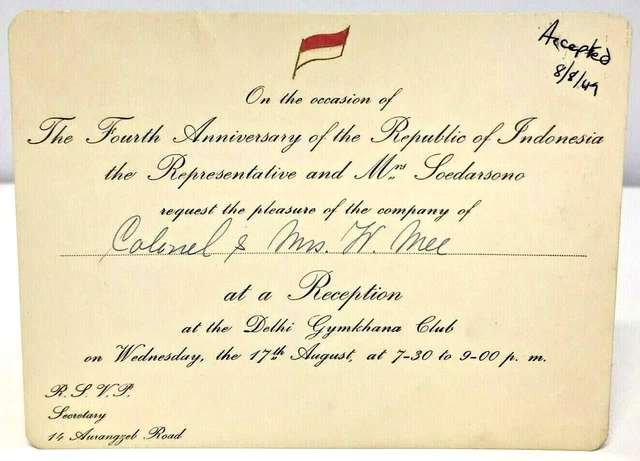 Accepted
8/8/49
On the occasion of
The Fourth Anniversary of the Republic of Indonesia
the Representative and Mrs Soedarsono
request the pleasure of the company of
Colonel & Mrs. W. Mee
at a Reception
at the Delhi Gymkhana Club
on Wednesday, the 17th August, at 7-30 to 9-00 p. m.
R. S. V. P.
Secretary
14 Aurangzeb Road